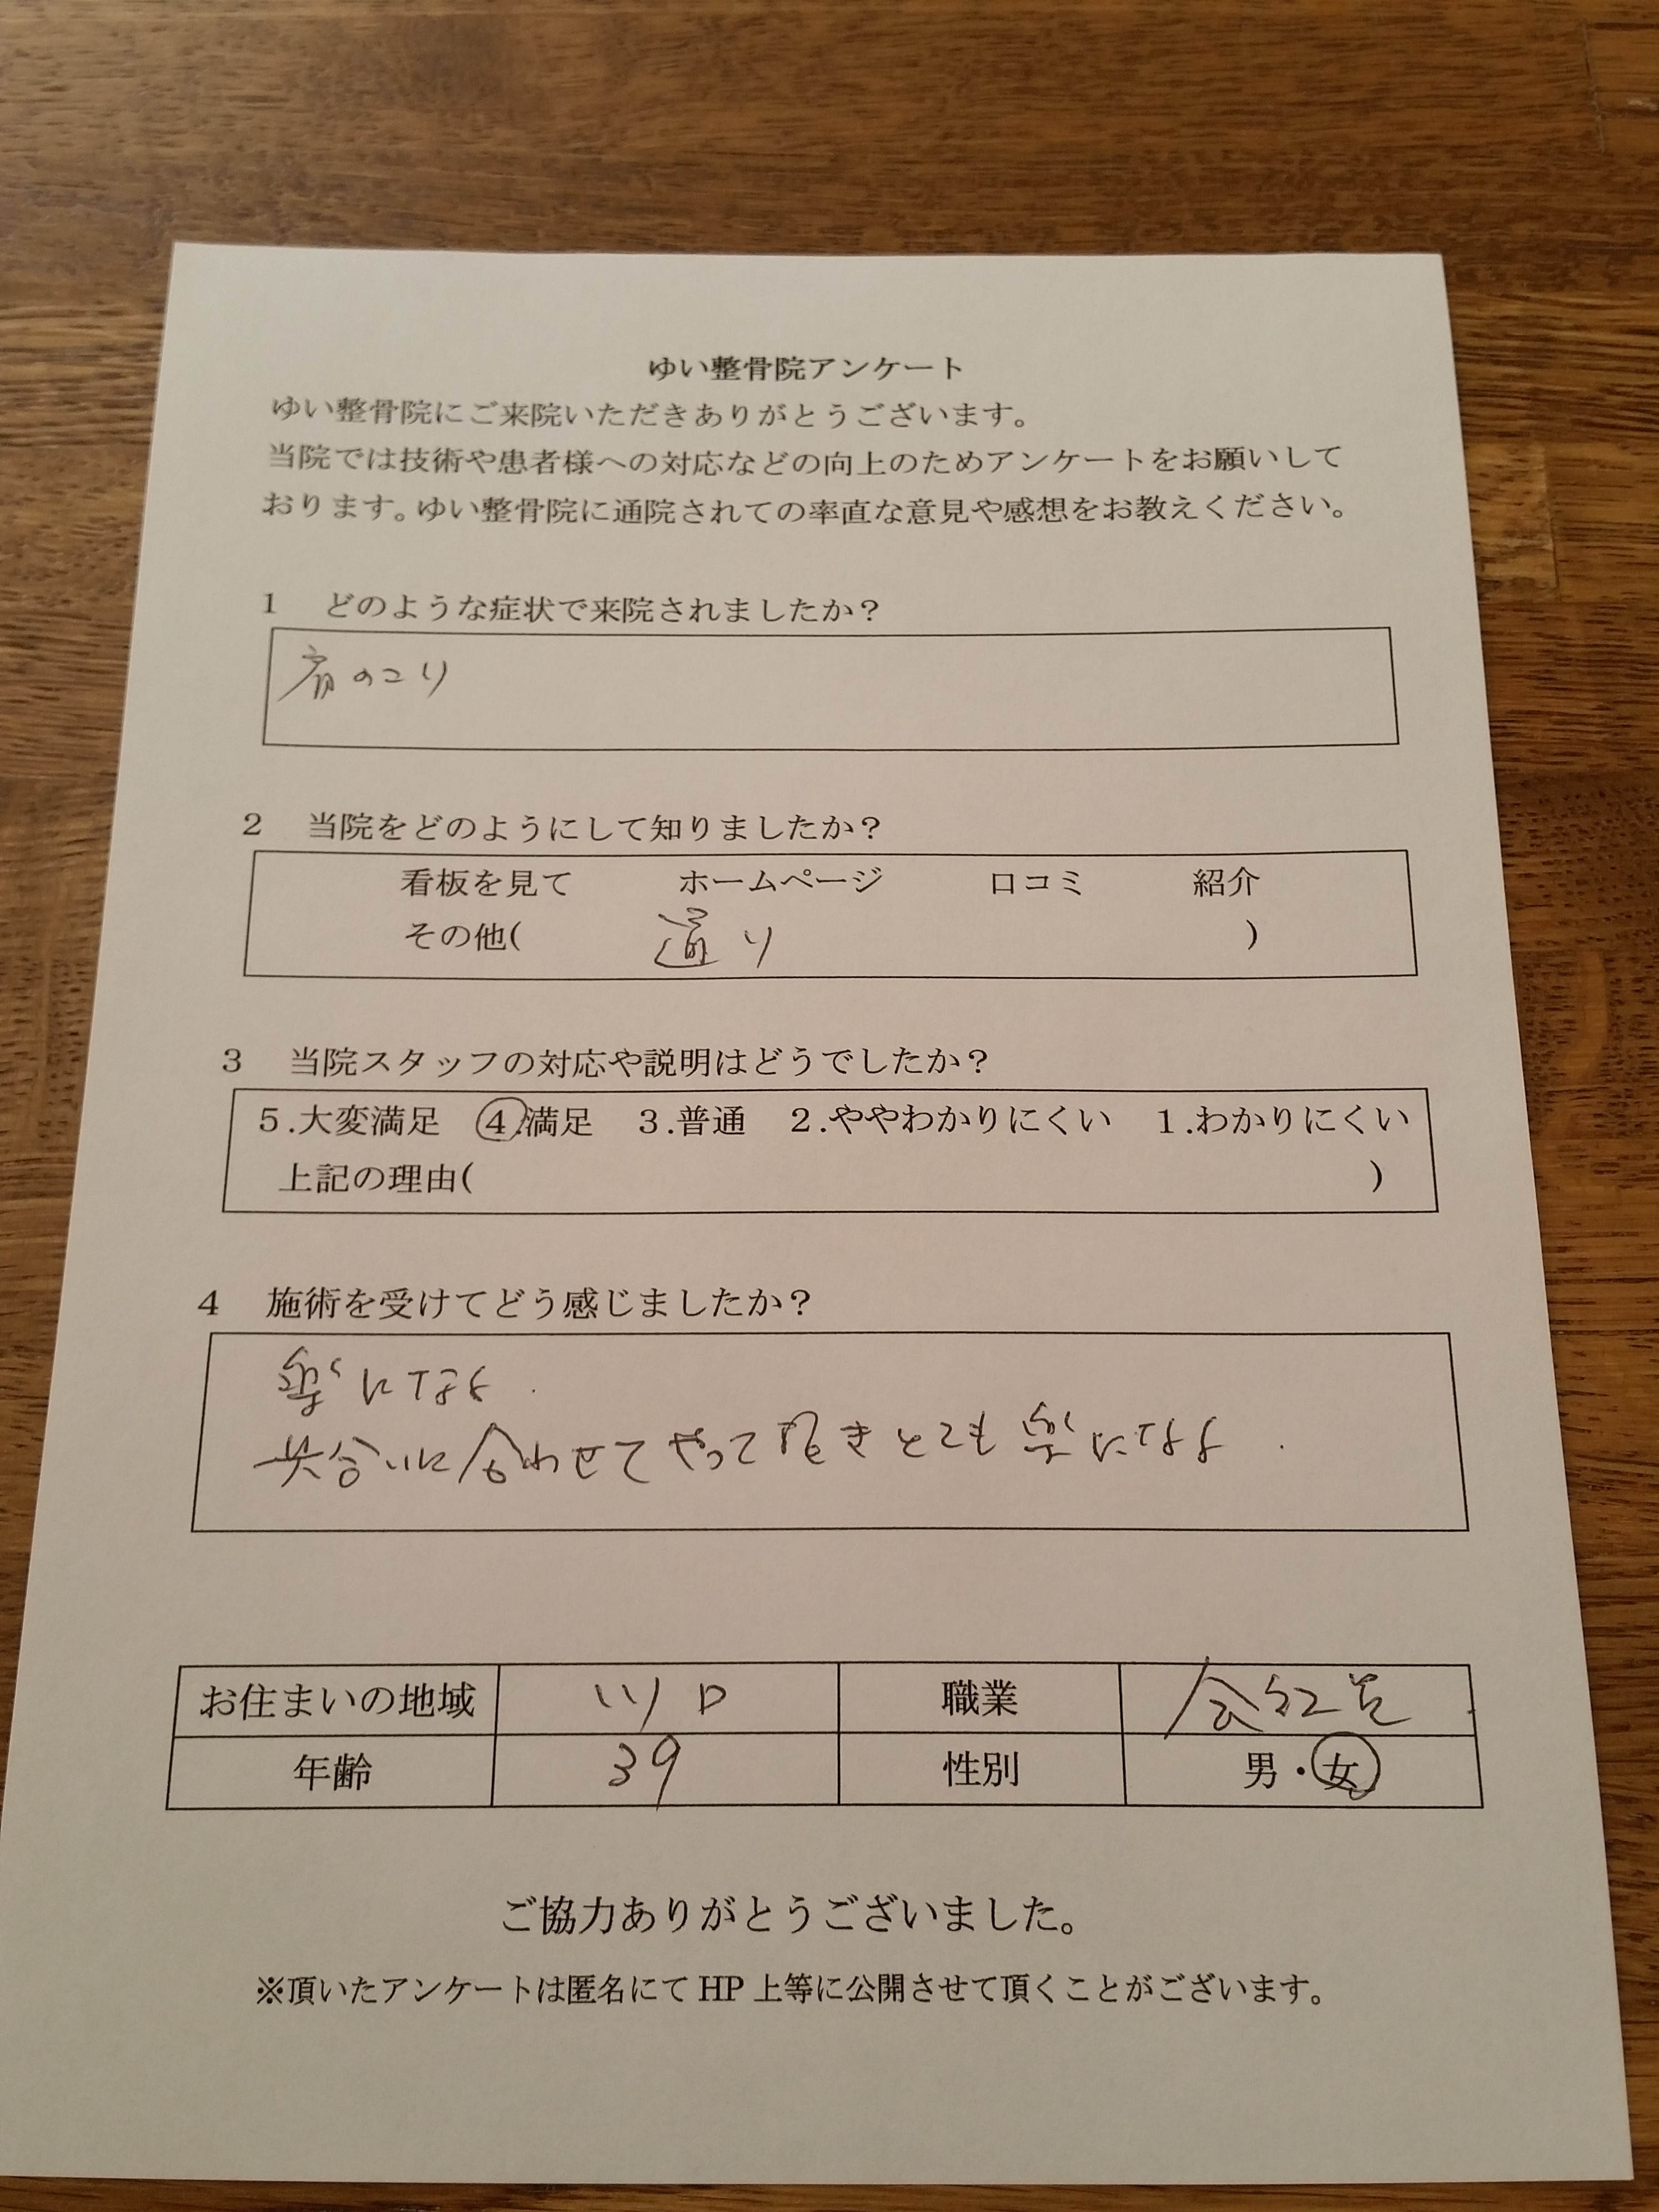 ゆい整骨院アンケート
ゆい整骨院にご来院いただきありがとうございます。
当院では技術や患者様への対応などの向上のためアンケートをお願いして
おります。ゆい整骨院に通院されての率直な意見や感想をお教えください。
1 どのような症状で来院されましたか？
肩のこり
2 当院をどのようにして知りましたか？
看板を見て ホームページ 口コミ 紹介
その他( 通り )
3 当院スタッフの対応や説明はどうでしたか？
5.大変満足 4.満足 3.普通 2.ややわかりにくい 1.わかりにくい
上記の理由( )
4 施術を受けてどう感じましたか？
楽になる
具合いに合わせてやって頂きとても楽になる
お住まいの地域 川口 職業 会社員
年齢 39 性別 男・女
ご協力ありがとうございました。
※頂いたアンケートは匿名にてHP上等に公開させて頂くことがございます。